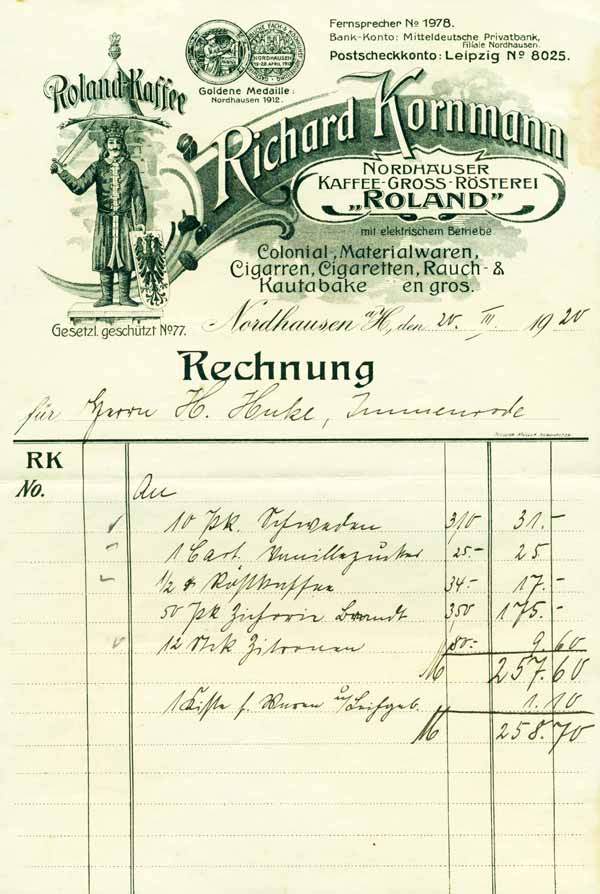 Fernsprecher No 1978.
Bank-Konto: Mitteldeutsche Privatbank,
Filiale Nordhausen.
Postscheckkonto: Leipzig No 8025.
Goldene Medaille:
Nordhausen 1912.
Roland-Kaffee
Richard Kornmann
NORDHÄUSER
KAFFEE-GROSS-RÖSTEREI
„ROLAND"
mit elektrischem Betriebe
Colonial-, Materialwaren,
Cigarren, Cigaretten, Rauch- &
Kautabake en gros.
Gesetzl. geschützt No 77.
Nordhausen a/H, den 20. III. 1920
Rechnung
für Herrn H. Huke, Immenrode
RK
No. An
10 Pk. Schweden 3,10 31.-
1 Cart. Vanillezucker 25.- 25
1/2 Röstkaffee 34.- 17.-
50 Pk Zichorie Brandt 3,50 175.-
12 Stck Zitronen 80.- 9.60
M 257.60
1 Kiste f. Waren u/Leihgeb. 1.10
M 258.70